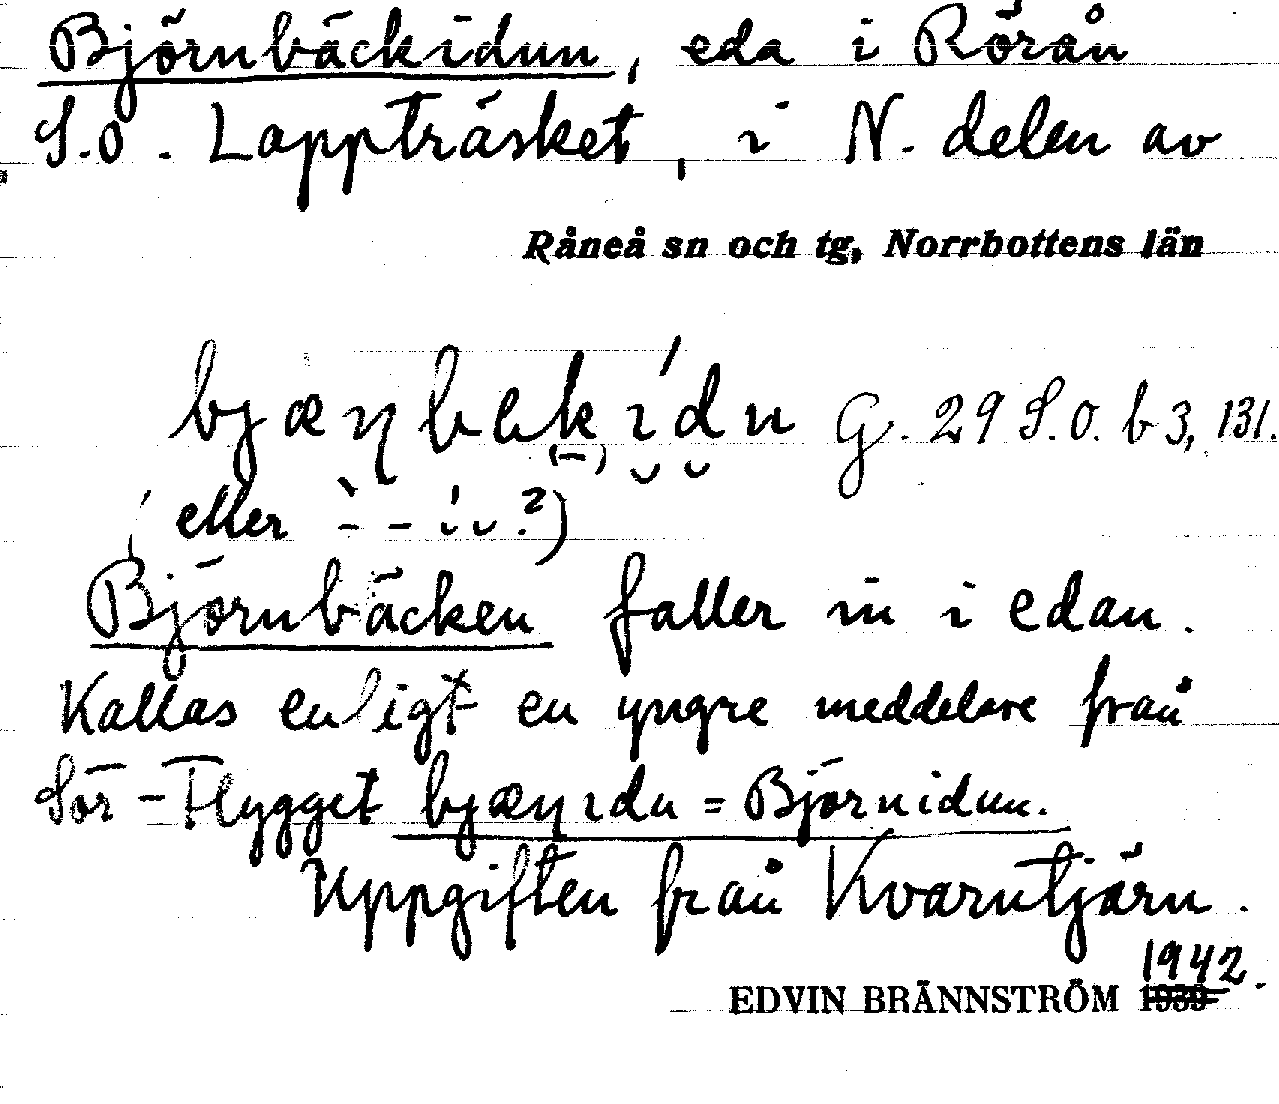 Björnbäckidun, eda i Rörån
S.O. Lappträsket, i N. delen av
Råneå sn och tg, Norrbottens län
bjæṇbekídu G. 29 S.O. b 3, 131.
(eller `- - í ᴗ ?)
Björnbäcken faller in i edan.
Kallas enligt en yngre meddelare från
Sör-Flygget bjæṇıdu = Björnidun.
Uppgiften från Kvarntjärn.
1942.
EDVIN BRÄNNSTRÖM 1939